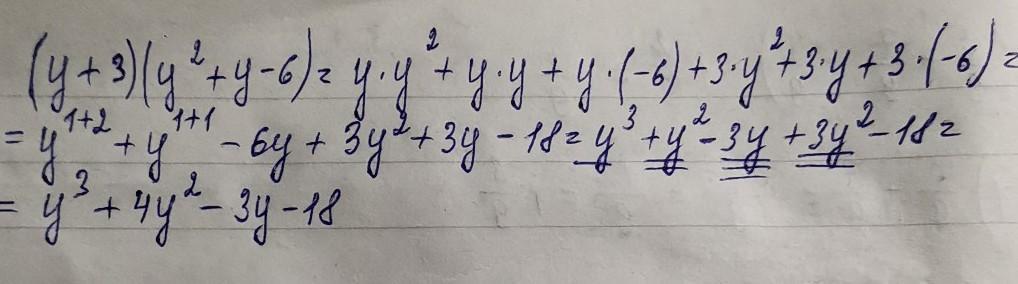 (y+3)(y²+y-6)= y·y²+y·y+y·(-6)+3·y²+3·y+3·(-6)=
= y¹⁺²+y¹⁺¹-6y+3y²+3y-18=y³+y²-3y+3y²-18=
= y³+4y²-3y-18